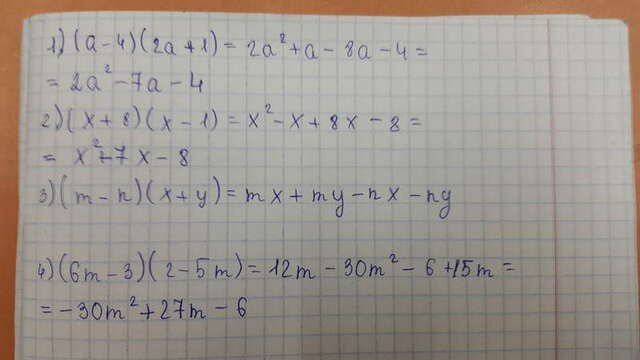 1) (a-4)(2a+1) = 2a²+a-8a-4=
= 2a²-7a-4
2) (x+8)(x-1) = x²-x+8x-8=
= x²+7x-8
3) (m-n)(x+y) = mx+my-nx-ny
4) (6m-3)(2-5m) = 12m-30m²-6+15m=
= -30m²+27m-6